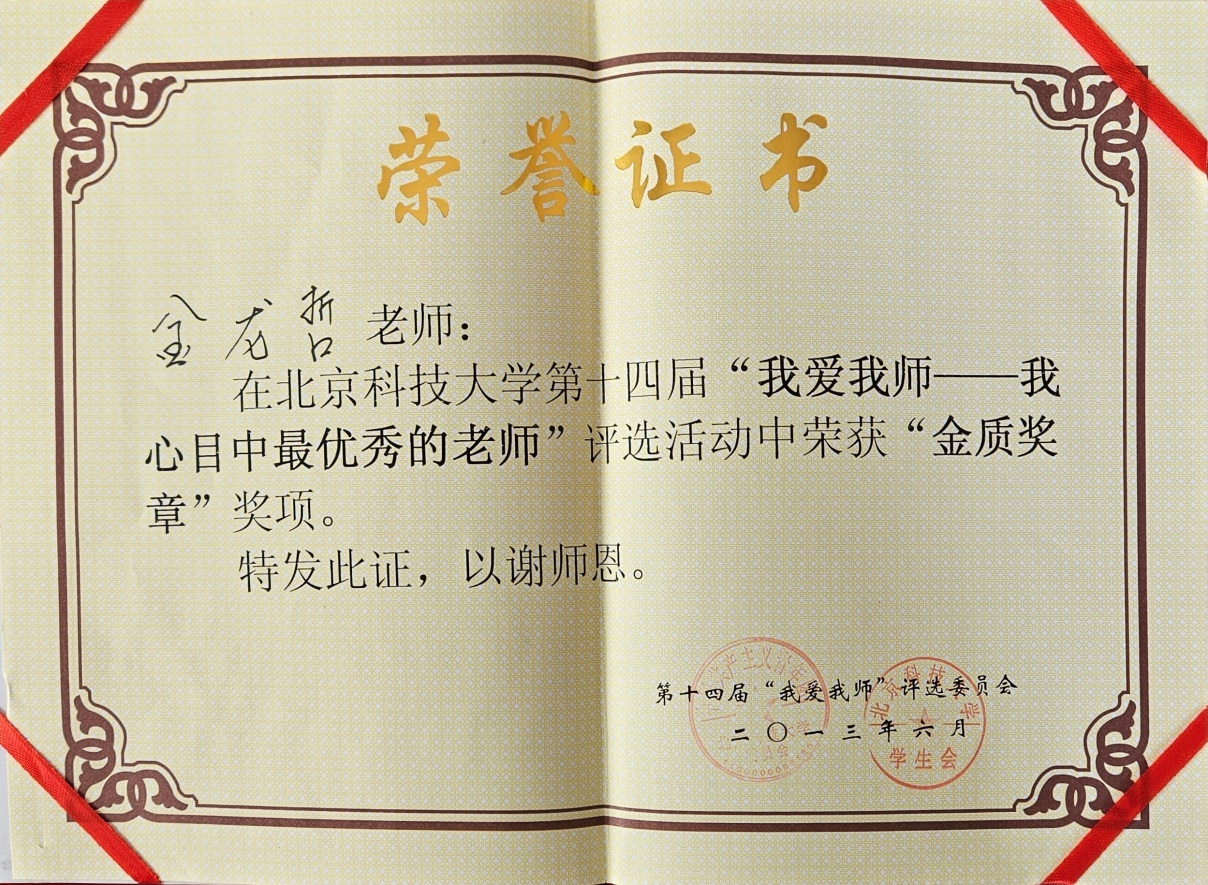 荣誉证书
金龙哲 老师：
在北京科技大学第十四届“我爱我师——我
心目中最优秀的老师”评选活动中荣获“金质奖
章”奖项。
特发此证，以谢师恩。
第十四届“我爱我师”评选委员会
二〇一三年六月
北京科技大学
学生会